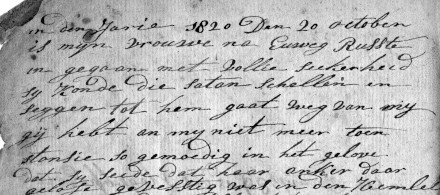 in den Jarie 1820 Den 20 october
is mijn vrouwe na Euweg Russte
in gegaan met vollie sekerheid
sy konde die satan schellin en
seggen tot hem gaat weg van my
gij hebt an my niet meer toen
stonsie so gemoedig in het gelove
dat sy seide dat haar anker daar
gevesstig was in den Hemel